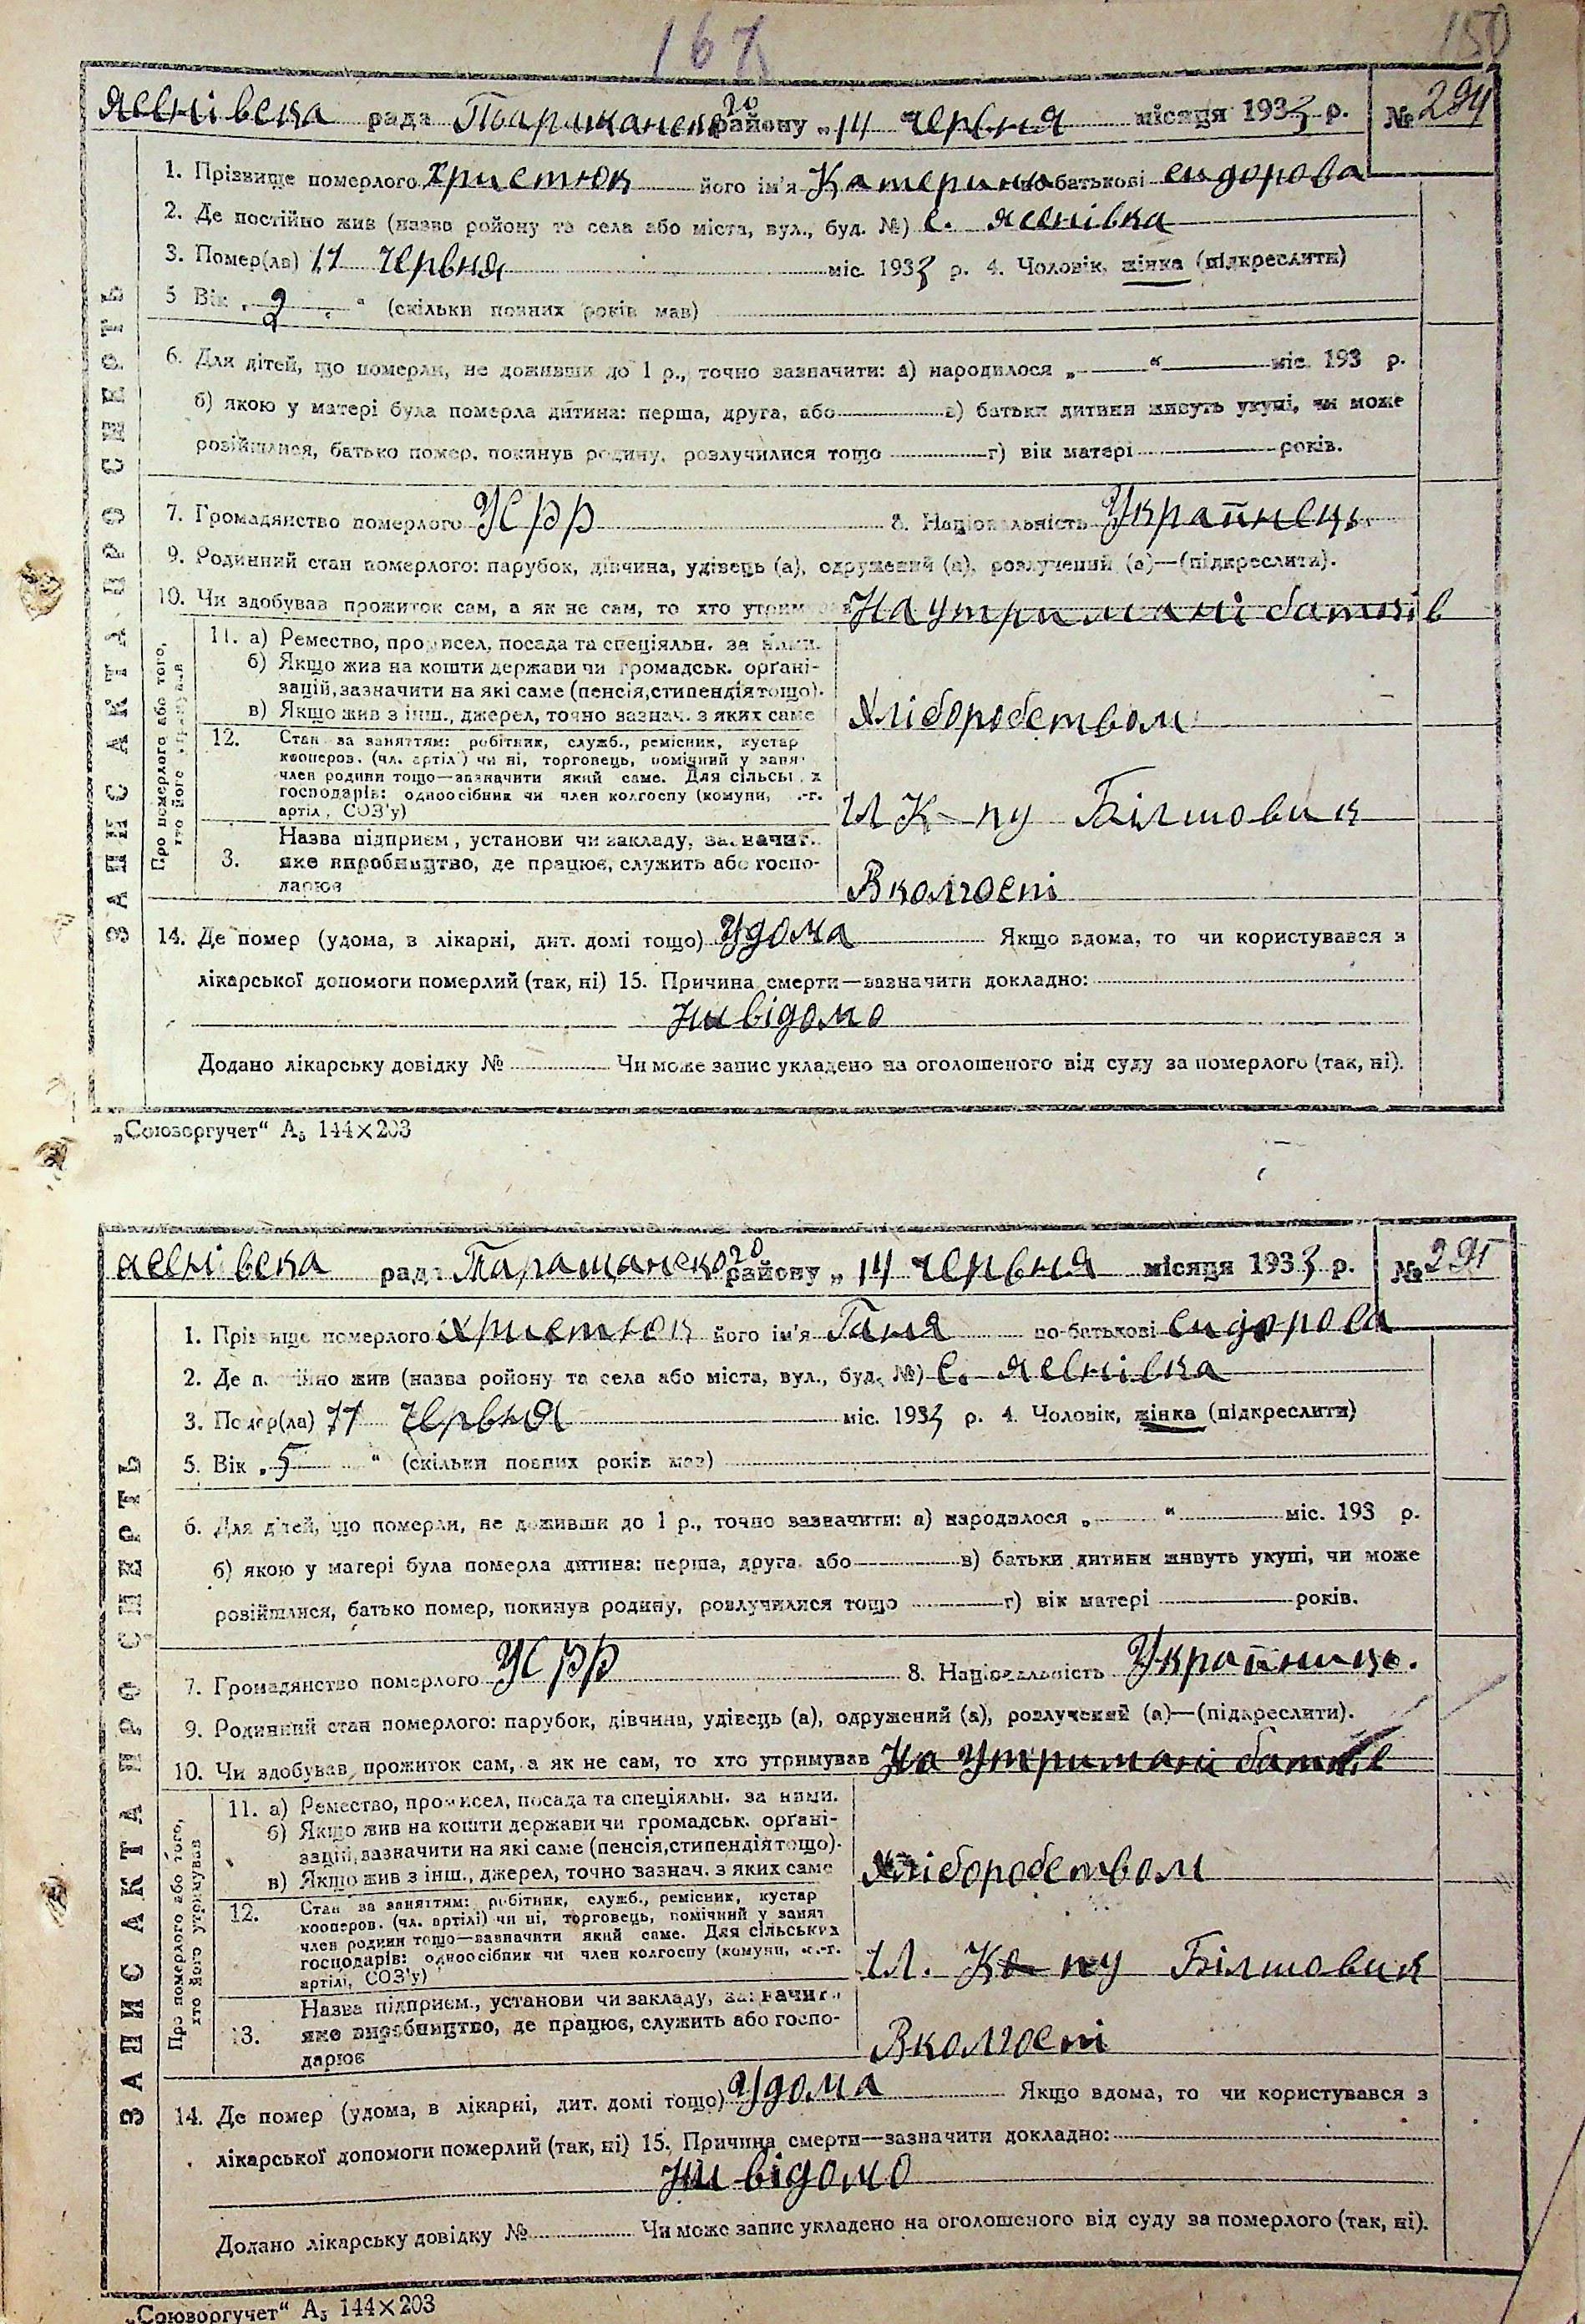 167
150
яснівська рада Таращанського району „ 14 червня місяця 1933 р. № 294
1. Прізвище померлого Христюк його ім'я Катерина по-батькові сидорова
2. Де постійно жив (назва ройону та села або міста, вул., буд. №) с. яснівка
3. Помер(ла) 11 червня міс. 1933 р. 4. Чоловік, жінка (підкреслити)
5 Вік „ 2 “ (скільки повних років мав)
6. Для дітей, що померли, не доживши до 1 р., точно зазначити: а) народилося „ “ міс. 193 р.
б) якою у матері була померла дитина: перша, друга, або в) батьки дитини живуть укупі, чи може
розійшлися, батько помер, покинув родину, розлучилися тощо г) вік матері років.
7. Громадянство померлого УСРР 8. Національність Українець
9. Родинний стан померлого: парубок, дівчина, удівець (а), одружений (а), розлучений (а)—(підкреслити).
10. Чи здобував прожиток сам, а як не сам, то хто утримував На утримані батьків
11. а) Ремество, промисел, посада та спеціяльн. за ними.
б) Якщо жив на кошти держави чи громадськ. орґані-
зацій, зазначити на які саме (пенсія, стипендія тощо).
в) Якщо жив з інш., джерел, точно зазнач. з яких саме Хліборобством
12. Стан за заняттям: робітник, служб., ремісник, кустар
кооперов. (чл. артіл ) чи ні, торговець, помічний у заня
член родини тощо—зазначити який саме. Для сільськ х
господарів: одноосібник чи член колгоспу (комуни, .-г.
артіл, СОЗ'у) Чл К-пу Білшовик
Про померлого або того, хто його утримував
3. Назва підприєм, установи чи закладу, зазначит.
яке виробництво, де працює, служить або госпо-
дарює В колгоспі
14. Де помер (удома, в лікарні, дит. домі тощо) Удома Якщо вдома, то чи користувався з
лікарської допомоги померлий (так, ні) 15. Причина смерти—зазначити докладно:
не відомо
Додано лікарську довідку № Чи може запис укладено на оголошеного від суду за померлого (так, ні).
ЗАПИС АКТА ПРО СМЕРТЬ
„Союзоргучет“ А₅ 144×203
яснівська рада Таращанського району „ 14 червня місяця 1933 р. № 295
1. Прізвище померлого Христюк його ім'я Ганя по-батькові сидорова
2. Де постійно жив (назва ройону та села або міста, вул., буд. №) с. яснівка
3. Помер(ла) 11 червня міс. 1933 р. 4. Чоловік, жінка (підкреслити)
5. Вік „ 5 “ (скільки повних років мав)
6. Для дітей, що померли, не доживши до 1 р., точно зазначити: а) народилося „ “ міс. 193 р.
б) якою у матері була померла дитина: перша, друга або в) батьки дитини живуть укупі, чи може
розійшлися, батько помер, покинув родину, розлучилися тощо г) вік матері років.
7. Громадянство померлого УСРР 8. Національність Українець.
9. Родинний стан померлого: парубок, дівчина, удівець (а), одружений (а), розлучений (а)—(підкреслити).
10. Чи здобував прожиток сам, а як не сам, то хто утримував На Утримані батьків
11. а) Ремество, промисел, посада та спеціяльн. за ними.
б) Якщо жив на кошти держави чи громадськ. орґані-
зацій, зазначити на які саме (пенсія, стипендія тощо).
в) Якщо жив з інш., джерел, точно зазнач. з яких саме Хліборобством
12. Стан за заняттям: робітник, служб., ремісник, кустар
кооперов. (чл. артілі) чи ні, торговець, помічний у занят
член родини тощо—зазначити який саме. Для сільських
господарів: одноосібник чи член колгоспу (комуни, с.-г.
артілі, СОЗ'у) Чл. Ко пу Білшовик
Про померлого або того, хто його утримував
13. Назва підприєм., установи чи закладу, зазначит.,
яке виробництво, де працює, служить або госпо-
дарює В колгоспі
14. Де помер (удома, в лікарні, дит. домі тощо) Удома Якщо вдома, то чи користувався з
лікарської допомоги померлий (так, ні) 15. Причина смерти—зазначити докладно:
не відомо
Додано лікарську довідку № Чи може запис укладено на оголошеного від суду за померлого (так, ні).
ЗАПИС АКТА ПРО СМЕРТЬ
„Союзоргучет“ А₅ 144×203